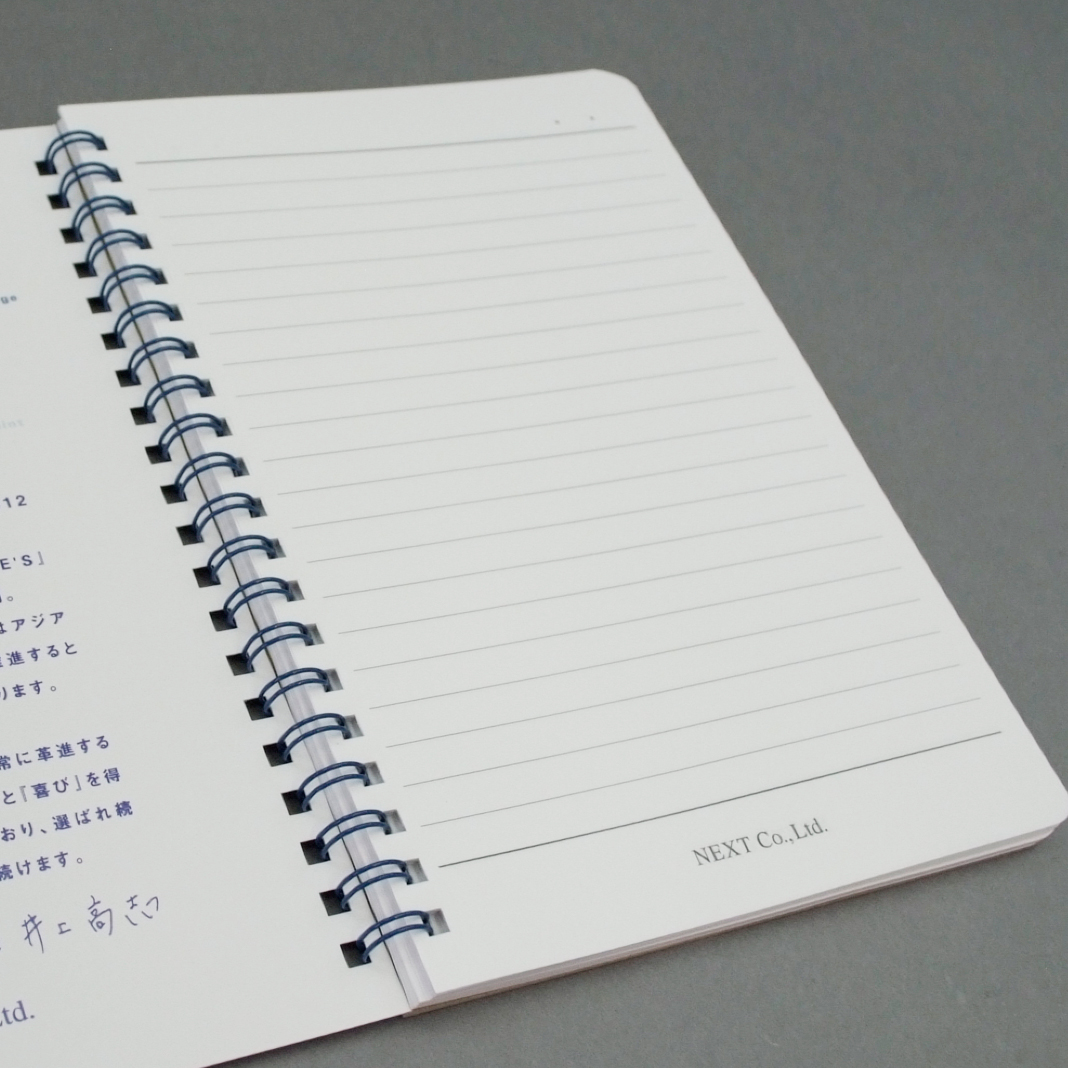 ge
12
E'S」
。
はアジア
進すると
ります。
常に革進する
と「喜び」を得
おり、選ばれ続
続けます。
井上高志
Ltd.
NEXT Co.,Ltd.